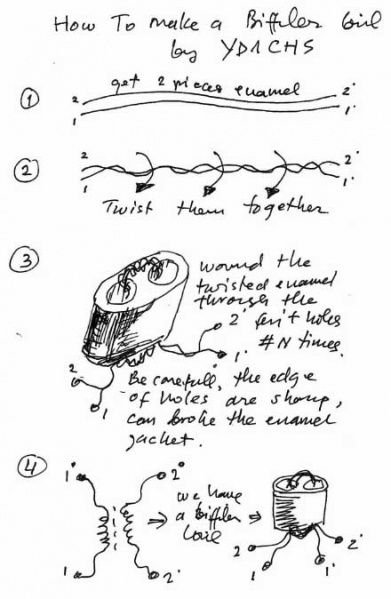 How To make a Biffiler Coil
by YD1CHS
1
get 2 pieces enamel
2 2'
1 1'
2
2 2'
1 1'
Twist them together
3
wound the
twisted enamel
through the
2' ferit holes
1' #N times.
2
1
Be carefull, the edge
of holes are sharp,
can broke the enamel
jacket.
4
1' 2'
we have
a Biffiler
Coil
1 2'
2 2'
1 1'